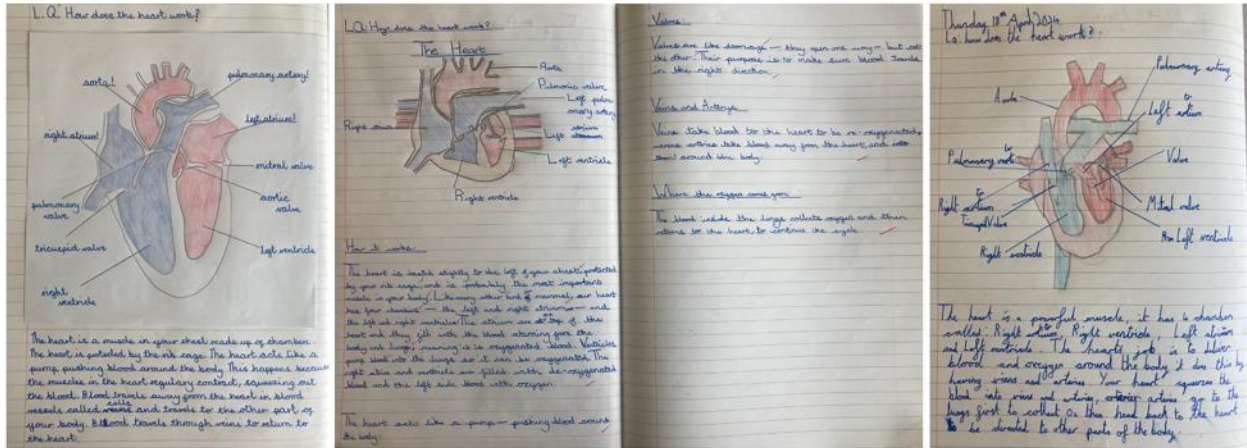 L.Q. How does the heart work?
aorta!
pulmonary artery!
right atrium!
left atrium!
mitral valve
aortic
valve
pulmonary
valve
tricuspid valve
left ventricle
right
ventricle
The heart is a muscle in your chest made up of chamber
The heart is protected by the rib cage. The heart acts like a
pump pushing blood around the body. This happens because
the muscles in the heart regulary contract, squeezing out
the blood. Blood travels away from the heart in blood
vessels called and travels to the other part of
your body. Blood travels through veins to return to
the heart.
LQ: How does the heart work?
The Heart
Aorta
Pulmonic valve
Left pulm
onary artery
Right
Left atrium
Left ventricle
Right ventricle
How it works
The heart is slightly to the left of your chest, protected
by your rib cage, and is probably the most important
muscle in your body. Like every other kind of mammal, our heart
has four chambers — the left and right atrium — and
the left and right ventricles. The atrium are on top of the
heart and they fill with the blood returning from the
body and lungs, meaning it is oxygenated blood. Ventricles
pump blood into the lungs so it can be oxygenated. The
right and ventricle are filled with de-oxygenated
blood and the left side blood with oxygen.
The heart acts like a pump — pushing blood around
the body.
Valves
Valves are like doorways — they open one way — but not
the other. Their purpose is to make sure blood travels
in the right direction.
Veins and
Veins take blood to the heart to be re-oxygenated,
arteries take blood away from the heart, and
around the body.
Where the oxygen comes from
The blood inside the lungs collects oxygen and then
returns to the heart to continue the cycle.
Thursday 18th April 2024
LQ: how does the heart work?
Pulmonary artery
Aorta
Left atrium
Pulmonary
Valve
Right
Mitral valve
Tricuspid Valve
Left ventricle
Right ventricle
The heart is a powerful muscle, it has 4 chamber
called: Right, Right ventricle, Left atrium
and Left ventricle. The hearts job is to deliver
blood and oxygen around the body it does this by
having viens and arteries. Your heart squeezes the
blood into viens and arteries, arteries go to the
lungs first to collect O2 then head back to the heart
to be directed to other parts of the body.